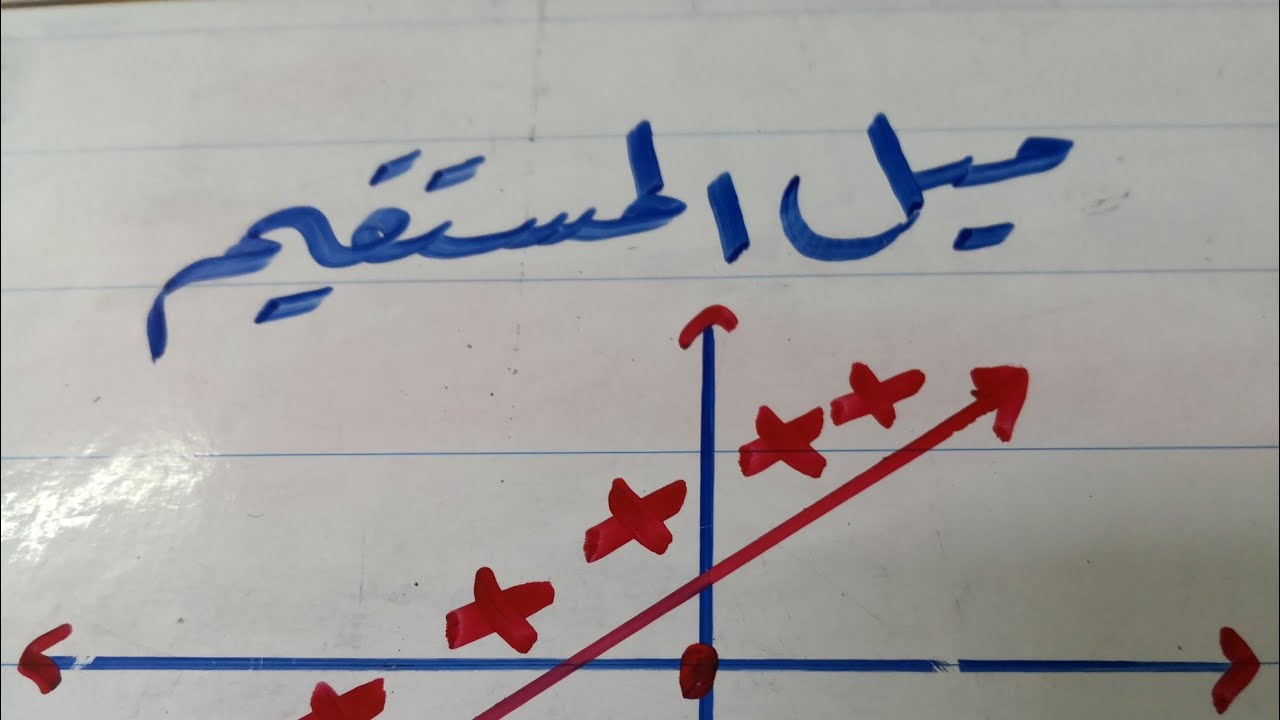 ميل المستقيم